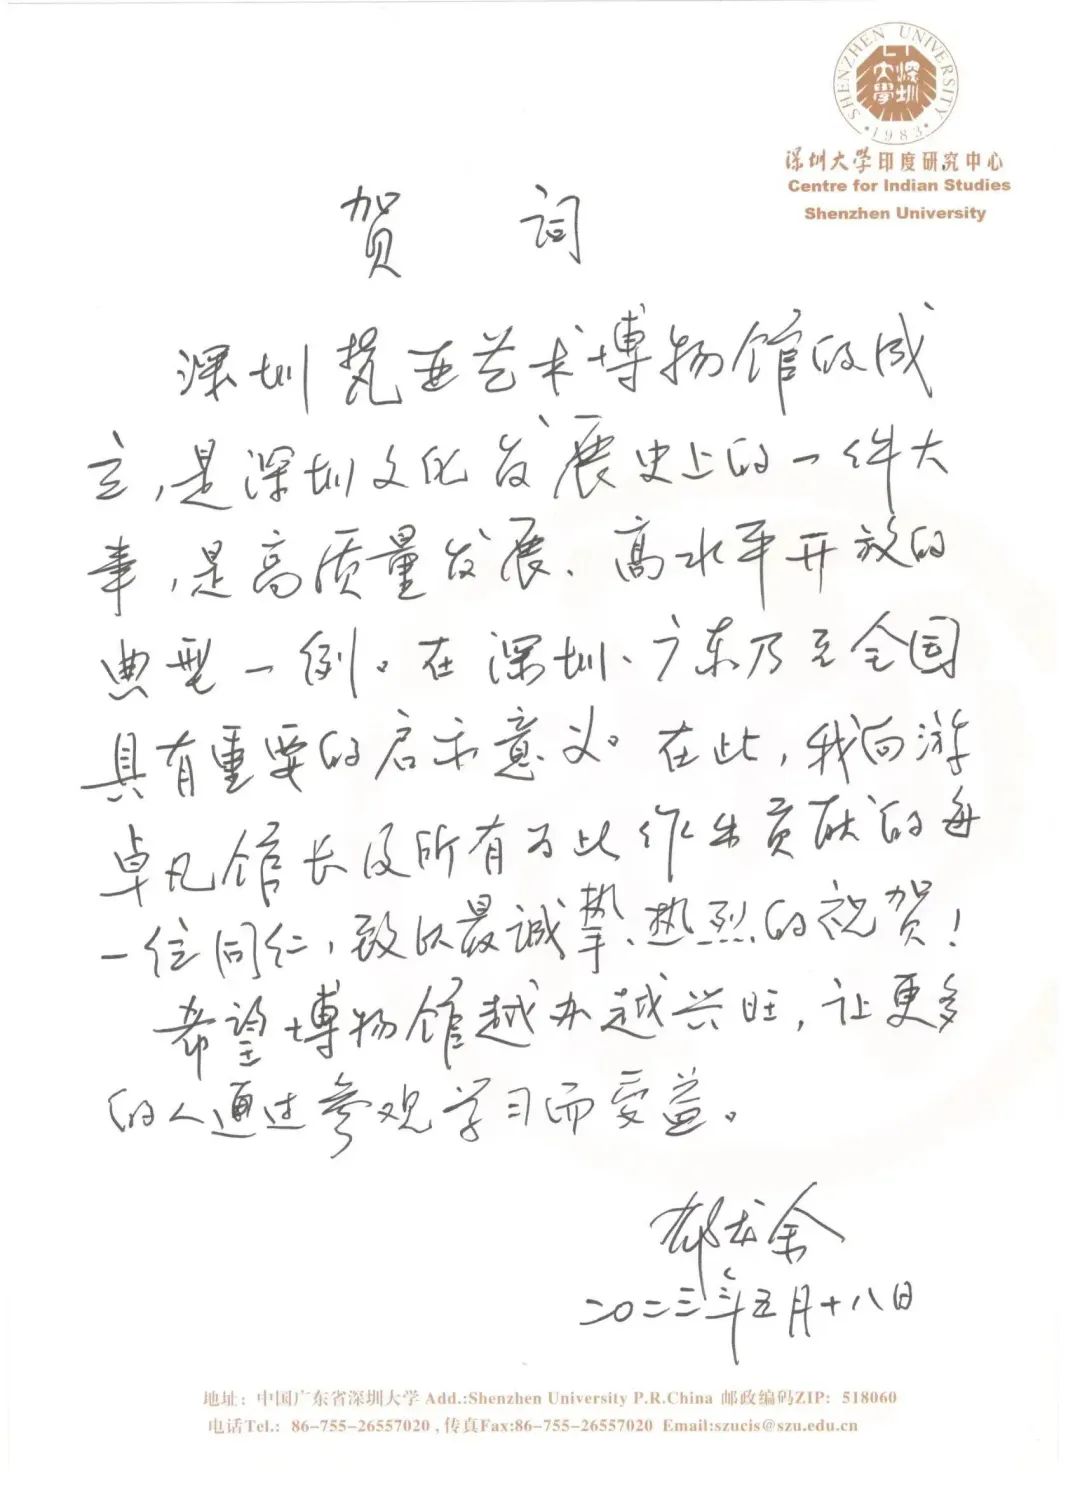 SHENZHEN UNIVERSITY
深圳大学
·1983·
深圳大学印度研究中心
Centre for Indian Studies
Shenzhen University
贺 词
深圳梵亚艺术博物馆的成
立,是深圳文化发展史上的一件大
事,是高质量发展、高水平开放的
典型一例。在深圳、广东乃至全国
具有重要的启示意义。在此,我向游
卓凡馆长及所有为此作出贡献的每
一位同仁,致以最诚挚、热烈的祝贺!
希望博物馆越办越兴旺,让更多
的人通过参观学习而受益。
郁龙余
二〇二三年五月十八日
地址: 中国广东省深圳大学 Add.:Shenzhen University P.R.China 邮政编码ZIP: 518060
电话Tel.: 86-755-26557020 , 传真Fax:86-755-26557020 Email:szucis@szu.edu.cn